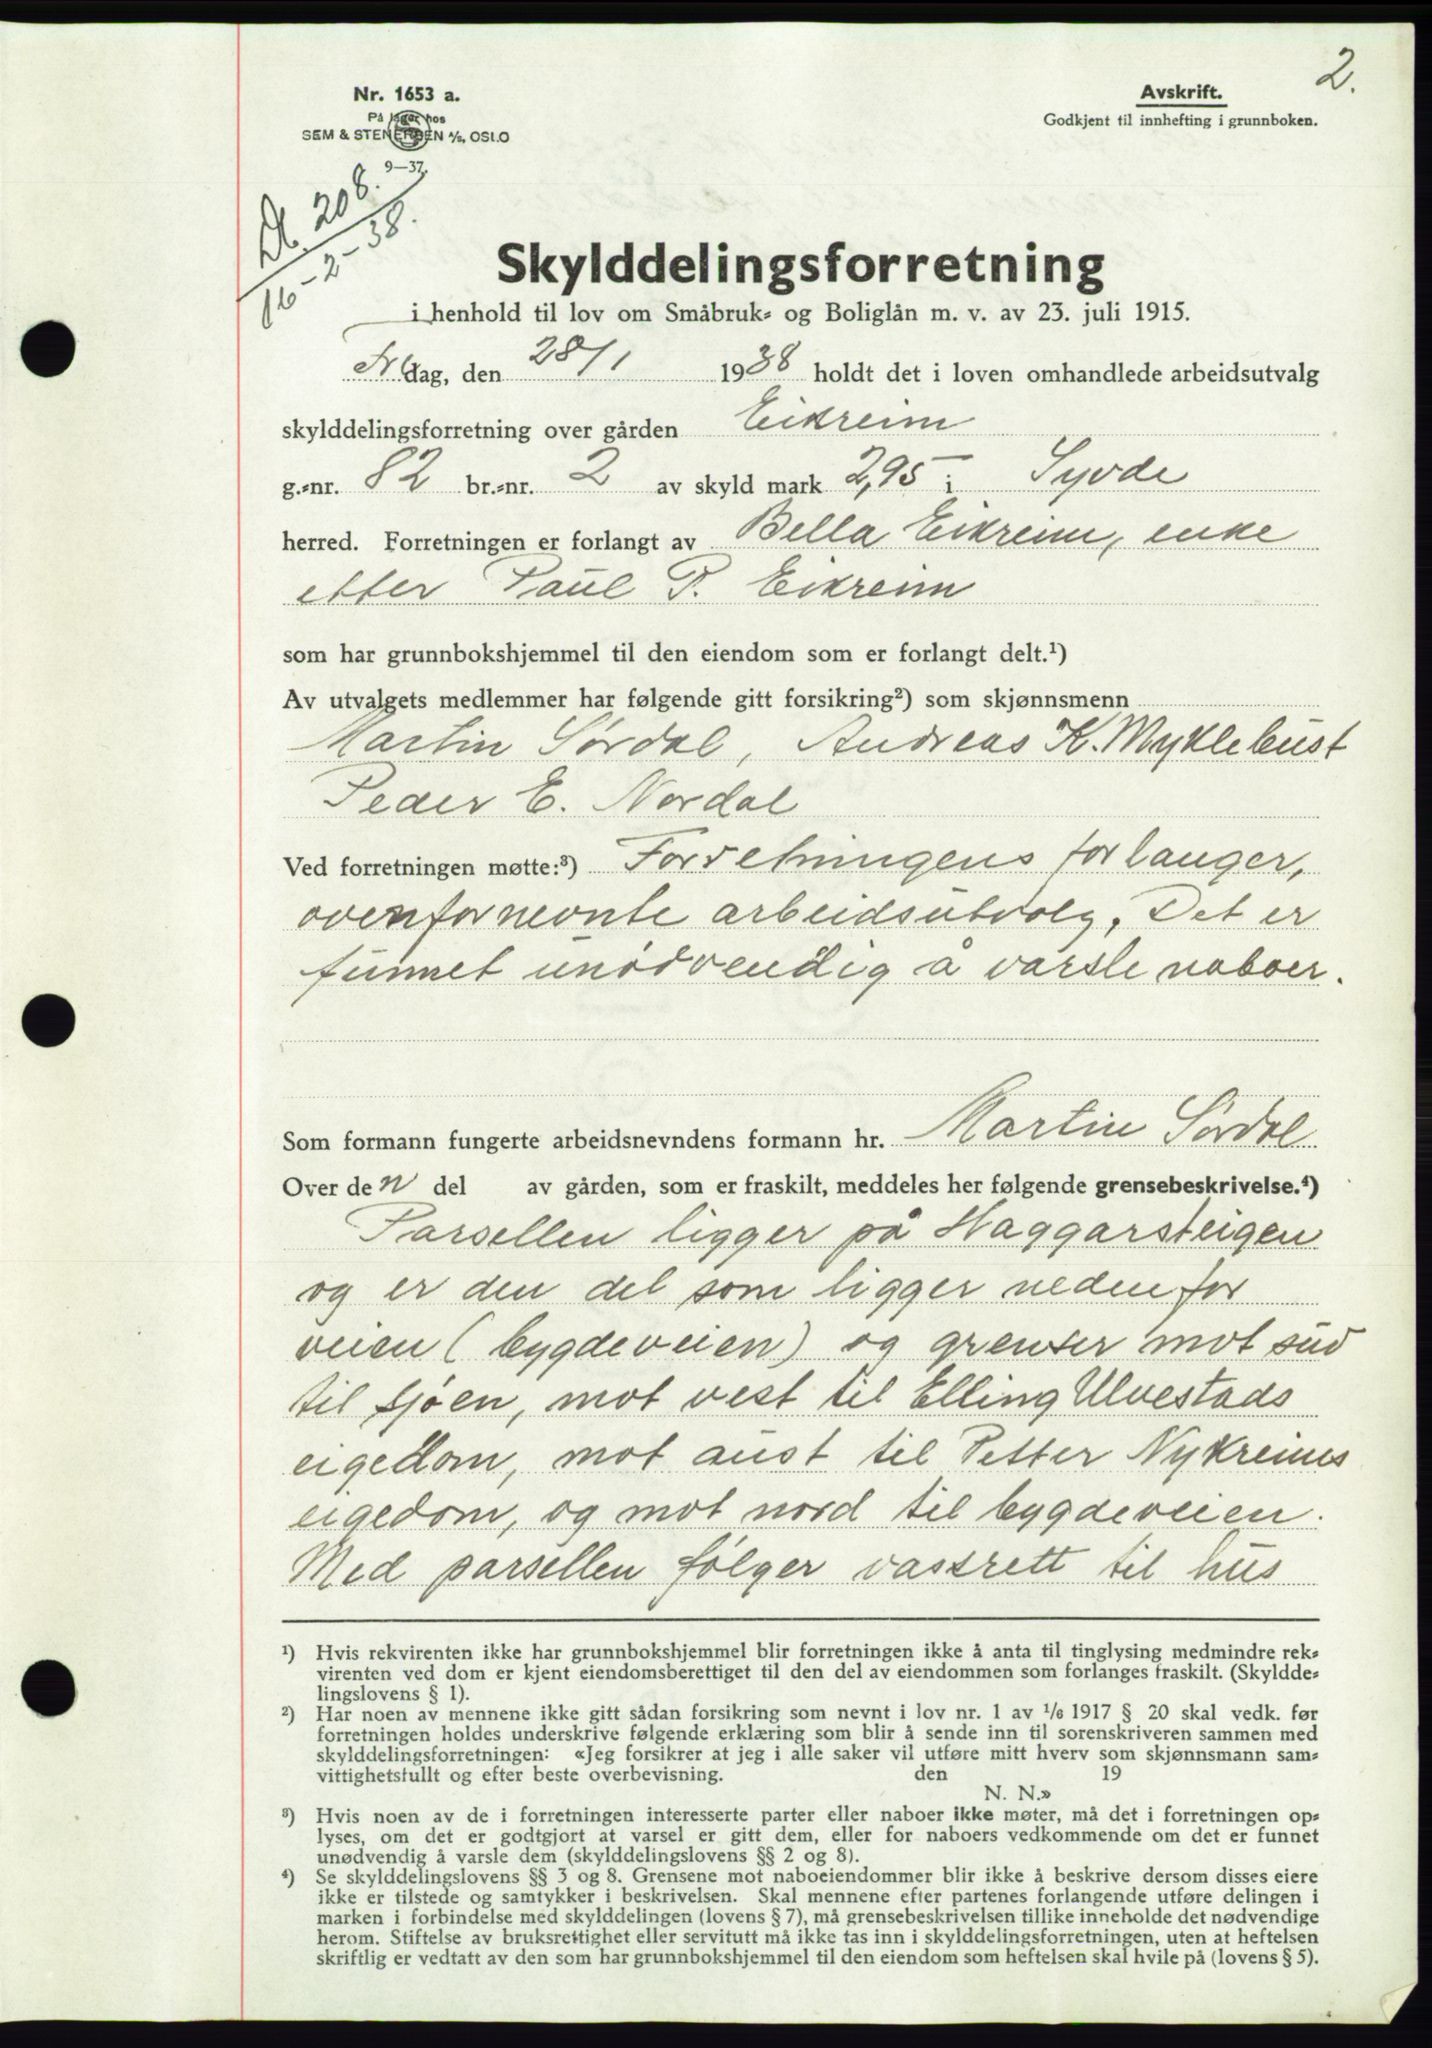 2.
Nr. 1653 a.
På lager hos
SEM & STENERSEN A/S, OSLO
9—37.
Avskrift.
Godkjent til innhefting i grunnboken.
Db. 208.
16-2-38.
Skylddelingsforretning
i henhold til lov om Småbruk- og Boliglån m. v. av 23. juli 1915.
Fredag, den 28/1 1938 holdt det i loven omhandlede arbeidsutvalg
skylddelingsforretning over gården Eikreim
g.-nr. 82 br.-nr. 2 av skyld mark 2,95 i Syvde
herred. Forretningen er forlangt av Bella Eikreim, enke
etter Paul P. Eikreim
som har grunnbokshjemmel til den eiendom som er forlangt delt.¹)
Av utvalgets medlemmer har følgende gitt forsikring²) som skjønnsmenn
Martin Sørdal, Andreas K. Myklebust
Peder E. Nordal
Ved forretningen møtte:³) Forretningens forlanger,
ovenfornevnte arbeidsutvalg. Det er
funnet unødvendig å varsle naboer.
Som formann fungerte arbeidsnevndens formann hr. Martin Sørdal
Over den del av gården, som er fraskilt, meddeles her følgende grensebeskrivelse.⁴)
Parsellen ligger på Haggarsteigen
og er den del som ligger nedenfor
veien (bygdeveien) og grenser mot sud
til sjøen, mot vest til Elling Ulvestads
eigedom, mot aust til Petter Nykreims
eigedom, og mot nord til bygdeveien.
Med parsellen følger vassrett til hus
¹) Hvis rekvirenten ikke har grunnbokshjemmel blir forretningen ikke å anta til tinglysing medmindre rek-
virenten ved dom er kjent eiendomsberettiget til den del av eiendommen som forlanges fraskilt. (Skyldde-
lingslovens § 1).
²) Har noen av mennene ikke gitt sådan forsikring som nevnt i lov nr. 1 av 1/6 1917 § 20 skal vedk. før
forretningen holdes underskrive følgende erklæring som blir å sende inn til sorenskriveren sammen med
skylddelingsforretningen: «Jeg forsikrer at jeg i alle saker vil utføre mitt hverv som skjønnsmann sam-
vittighetsfullt og efter beste overbevisning. den 19
N. N.»
³) Hvis noen av de i forretningen interesserte parter eller naboer ikke møter, må det i forretningen op-
lyses, om det er godtgjort at varsel er gitt dem, eller for naboers vedkommende om det er funnet
unødvendig å varsle dem (skylddelingslovens §§ 2 og 8).
⁴) Se skylddelingslovens §§ 3 og 8. Grensene mot naboeiendommer blir ikke å beskrive dersom disses eiere
ikke er tilstede og samtykker i beskrivelsen. Skal mennene efter partenes forlangende utføre delingen i
marken i forbindelse med skylddelingen (lovens § 7), må grensebeskrivelsen tillike inneholde det nødvendige
herom. Stiftelse av bruksrettighet eller servitutt må ikke tas inn i skylddelingsforretningen, uten at heftelsen
skriftlig er vedtatt av den som har grunnbokshjemmel til den eiendom som heftelsen skal hvile på (lovens § 5).